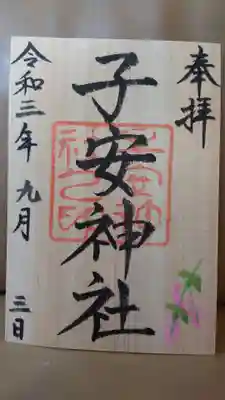 奉拝
子安神社
令和三年 九月 三日